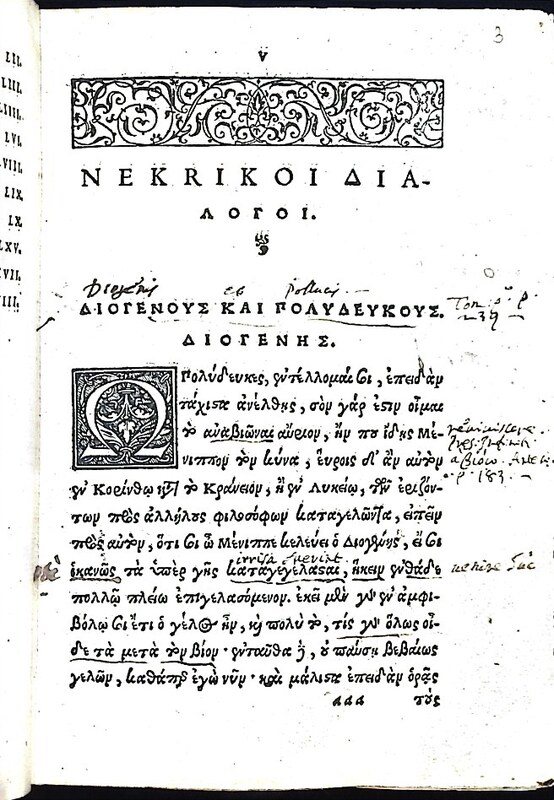 3
V
ΝΕΚRΙΚΟΙ ΔΙΑ-
ΛΟΓΟΙ.
Diogenis et Pollucis
ΔΙΟΓΕΝΟΥΣ ΚΑΙ ΠΟΛΥΔΕΥΚΟΥΣ.
ΔΙΟΓΕΝΗΣ.
Ω Πολύδευκες, ἐντέλλομαί σοι, ἐπειδὰν
τάχιστα ἀνέλθῃς, σὸν γάρ ἐστιν οἶμαι
τὸ ἀναβιῶναι αὔριον, ἤν που ἴδῃς Μέ-
νιππον τὸν κύνα, εὕροις δ' ἂν αὐτὸν
ἐν Κορίνθῳ κατὰ τὸ Κράνειον, ἢ ἐν Λυκείῳ, τῶν ἐριζόν-
των πρὸς ἀλλήλους φιλοσόφων καταγελῶντα, εἰπεῖν
πρὸς αὐτὸν, ὅτι σοι ὦ Μένιππε κελεύει ὁ Διογένης, εἴ σοι
ἱκανῶς τὰ ὑπὲρ γῆς καταγεγέλασαι, ἥκειν ἐνθάδε
πολλῷ πλείω ἐπιγελασόμενον. ἐκεῖ μὲν γὰρ ἐν ἀμφι-
βόλῳ σοι ἔτι ὁ γέλως ἦν, καὶ πολὺ τὸ, τίς γὰρ ὅλως οἶ-
δε τὰ μετὰ τὸν βίον· ἐνταῦθα δὲ, οὐ παύσῃ βεβαίως
γελῶν, καθάπερ ἐγὼ νῦν· καὶ μάλιστα ἐπειδὰν ὁρᾷς
aaa τοὺς
LII.
LIII.
LIIII.
LVI.
VIII.
LIX.
LX.
LXV.
VII.
III.